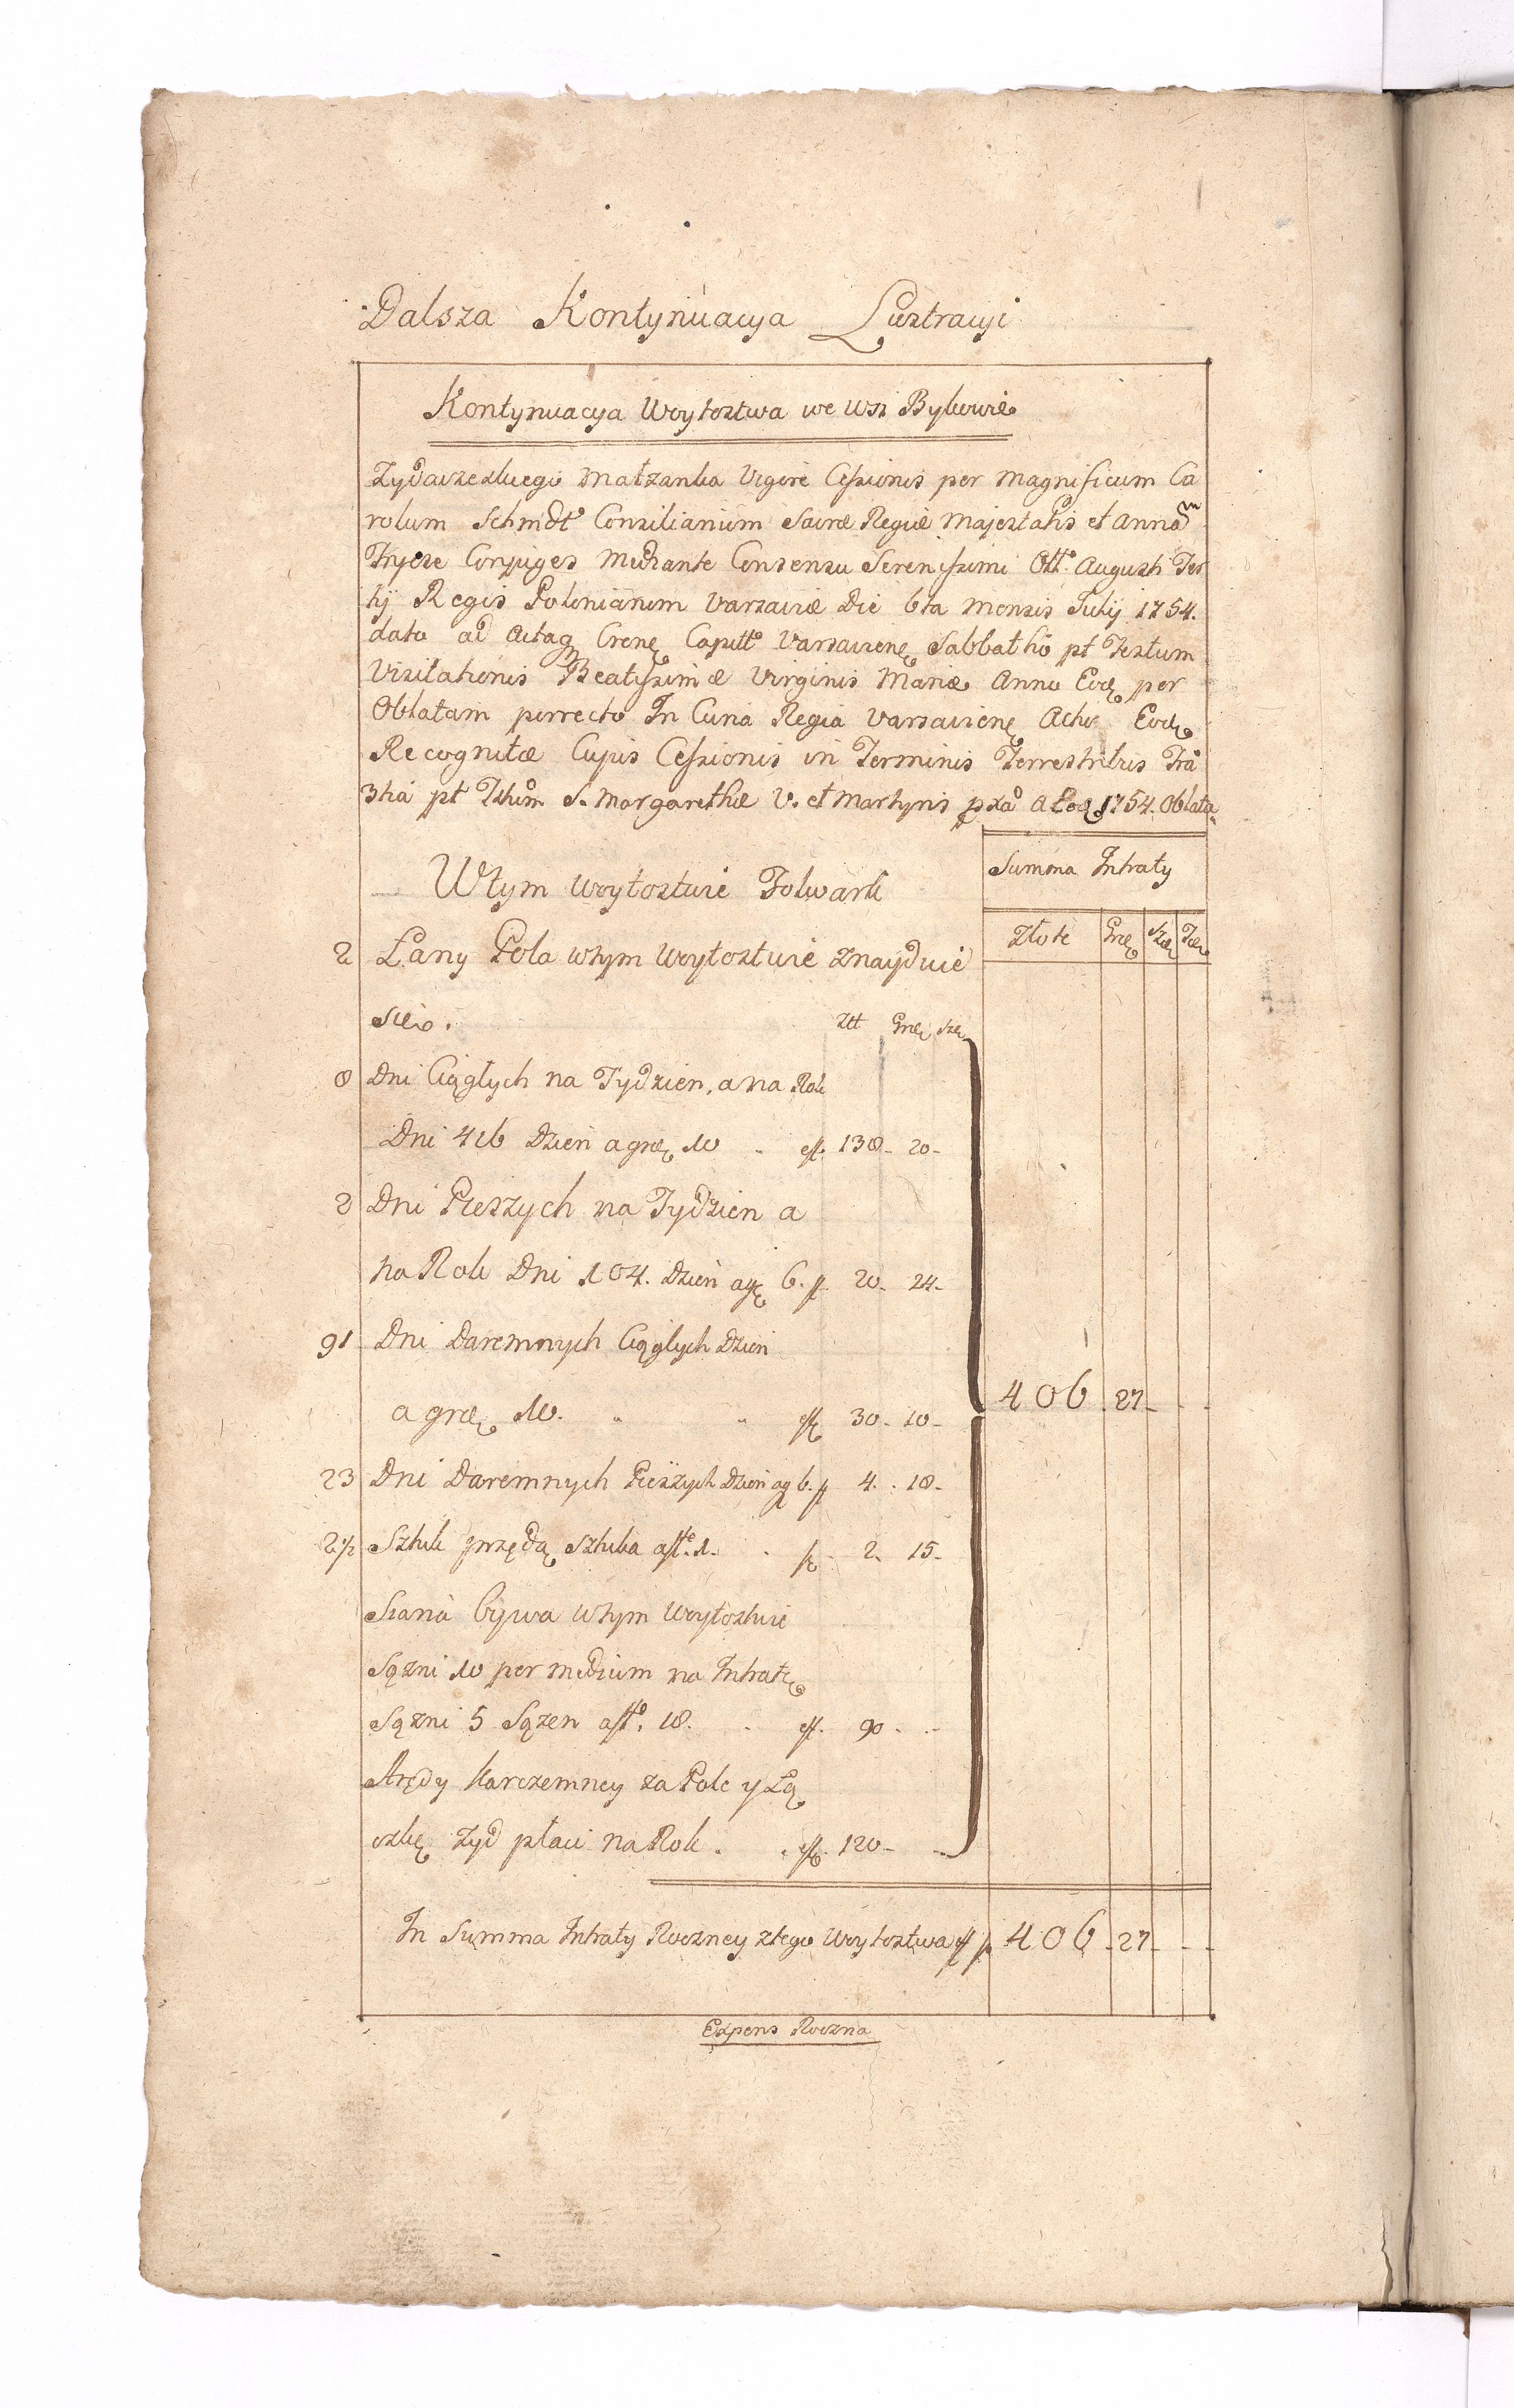 Dalsza Kontynuacya Lustracyi
Kontynuacya Woytostwa we Wsi Bylowie
Zydaczezkiego Matzanka Vigore Cessionis per Magnificum Ca
rolum Schmdt Consiliarium Sacræ Regiæ Majestatis et Annam
Fryeze Conjuges Mediante Consensu Serenissimi Augusti Ter
tij Regis Poloniarum Varsaviæ Die 6ta Mensis Julij 1754.
dato ad Actaq Crene Capitt Varsaviene Sabbatho pt Festum
Visitationis Beatissimæ Virginis Mariæ Anno Eod per
Oblatam porrecto In Curia Regia Varsaviene Actis Eod
Recognitæ Cujus Cessionis in Terminis Terrestribus
pt S. Margarethæ V. et Martyris A Eod 1754. Oblata
Summa Intraty
Wtym Woytostwie Folwark
Złote Grę Szę
2 Łany Pola wtym Woytostwie znayduie
sie.
Złt Grę Szę
8 Dni Ciągłych na Tydzien, a na Rok
Dni 416 Dzień a grę 10 . ff. 138 - 20 -
2 Dni Pieszych na Tydzien a
na Rok Dni 104. Dzień a g 6. f. 20 - 24 -
91 Dni Daremnych Ciągłych Dzień
a grę 10. " " ff 30 - 10 -
406 - 27 - - -
23 Dni Daremnych Pieszych Dzień a g 6. f 4. . 18 -
2 1/2 Sztuk przędzą Sztuka a ft. 1. . f. 2. 15 -
Siana bywa wtym Woytostwie
Sązni 10 per medium na Intratę
Sązni 5 Sązen a ft. 18. . ff. 90 - . -
Arędy Karczemney za Pole y Łą
czkę Zyd płaci na Rok . . ff. 120 - . -
In Summa Intraty Roczney ztego Woytostwa ff 406 - 27 - - -
Expens Roczna